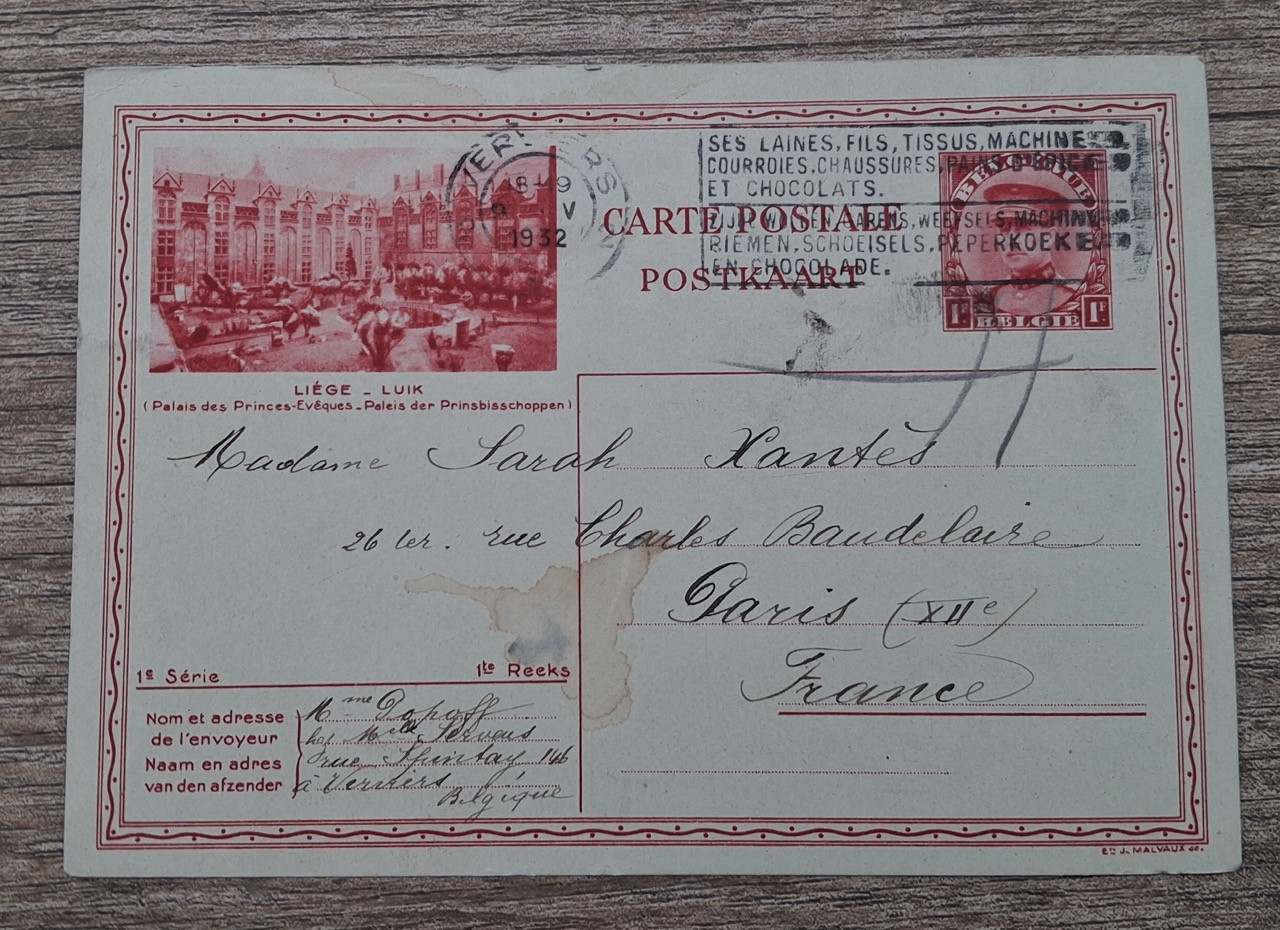 VERVIERS
18-19
V
1932
SES LAINES, FILS, TISSUS, MACHINES,
COURROIES, CHAUSSURES, PAINS D'EPICE
ET CHOCOLATS.
ZIJN WOLLEN, GARENS, WEEFSELS, MACHINE
RIEMEN, SCHOEISELS, PEPERKOEKE
EN CHOCOLADE.
CARTE POSTALE
POSTKAART
BELGIQUE
1F BELGIE 1F
LIÉGE - LUIK
(Palais des Princes-Evêques - Paleis der Prinsbisschoppen)
Madame Sarah Xantès
26 ter. rue Charles Baudelaire
Paris (XIIe)
France
1e Série 1te Reeks
Nom et adresse
de l'envoyeur
Naam en adres
van den afzender
Mme Popoff
Mlle Servais
rue 146
à Verviers
Belgique
ED J. MALVAUX